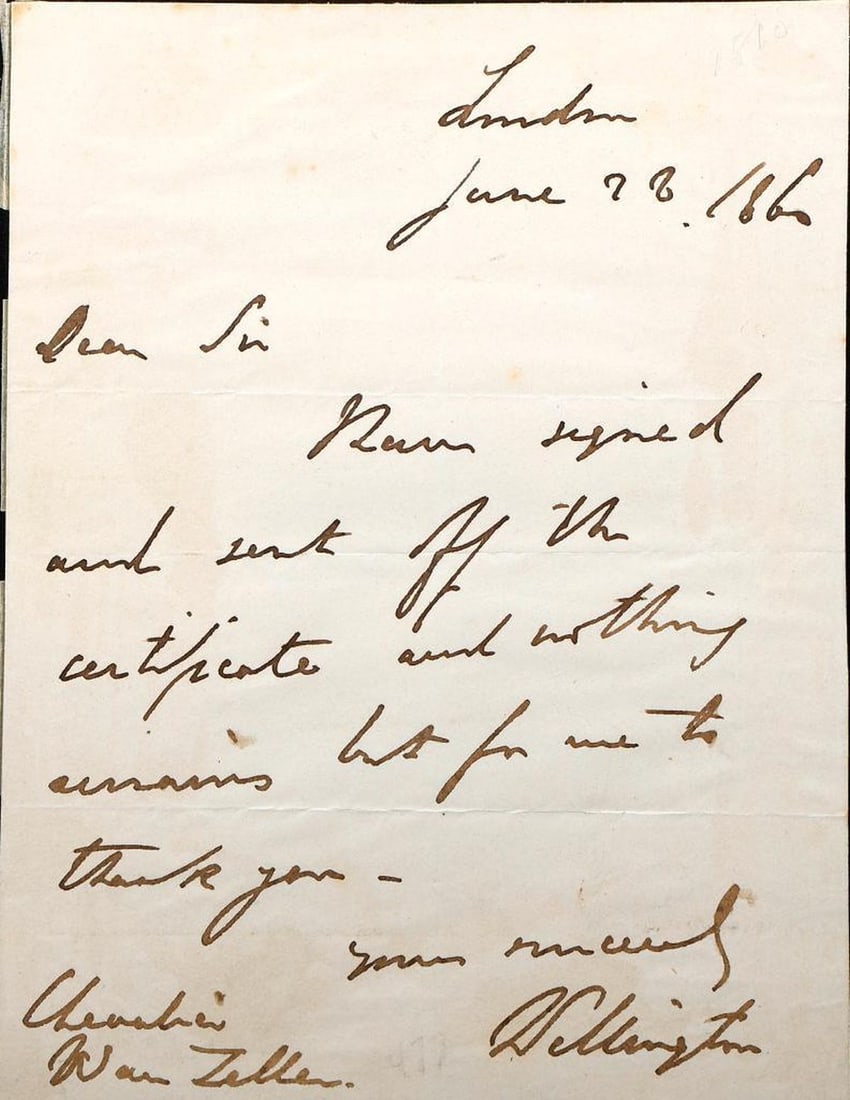 London
June 22. 1860
Dear Sir
I have signed
and sent off the
certificate and nothing
remains but for me to
thank you —
yours sincerely
Wellington
Chevalier
Van Zeller.